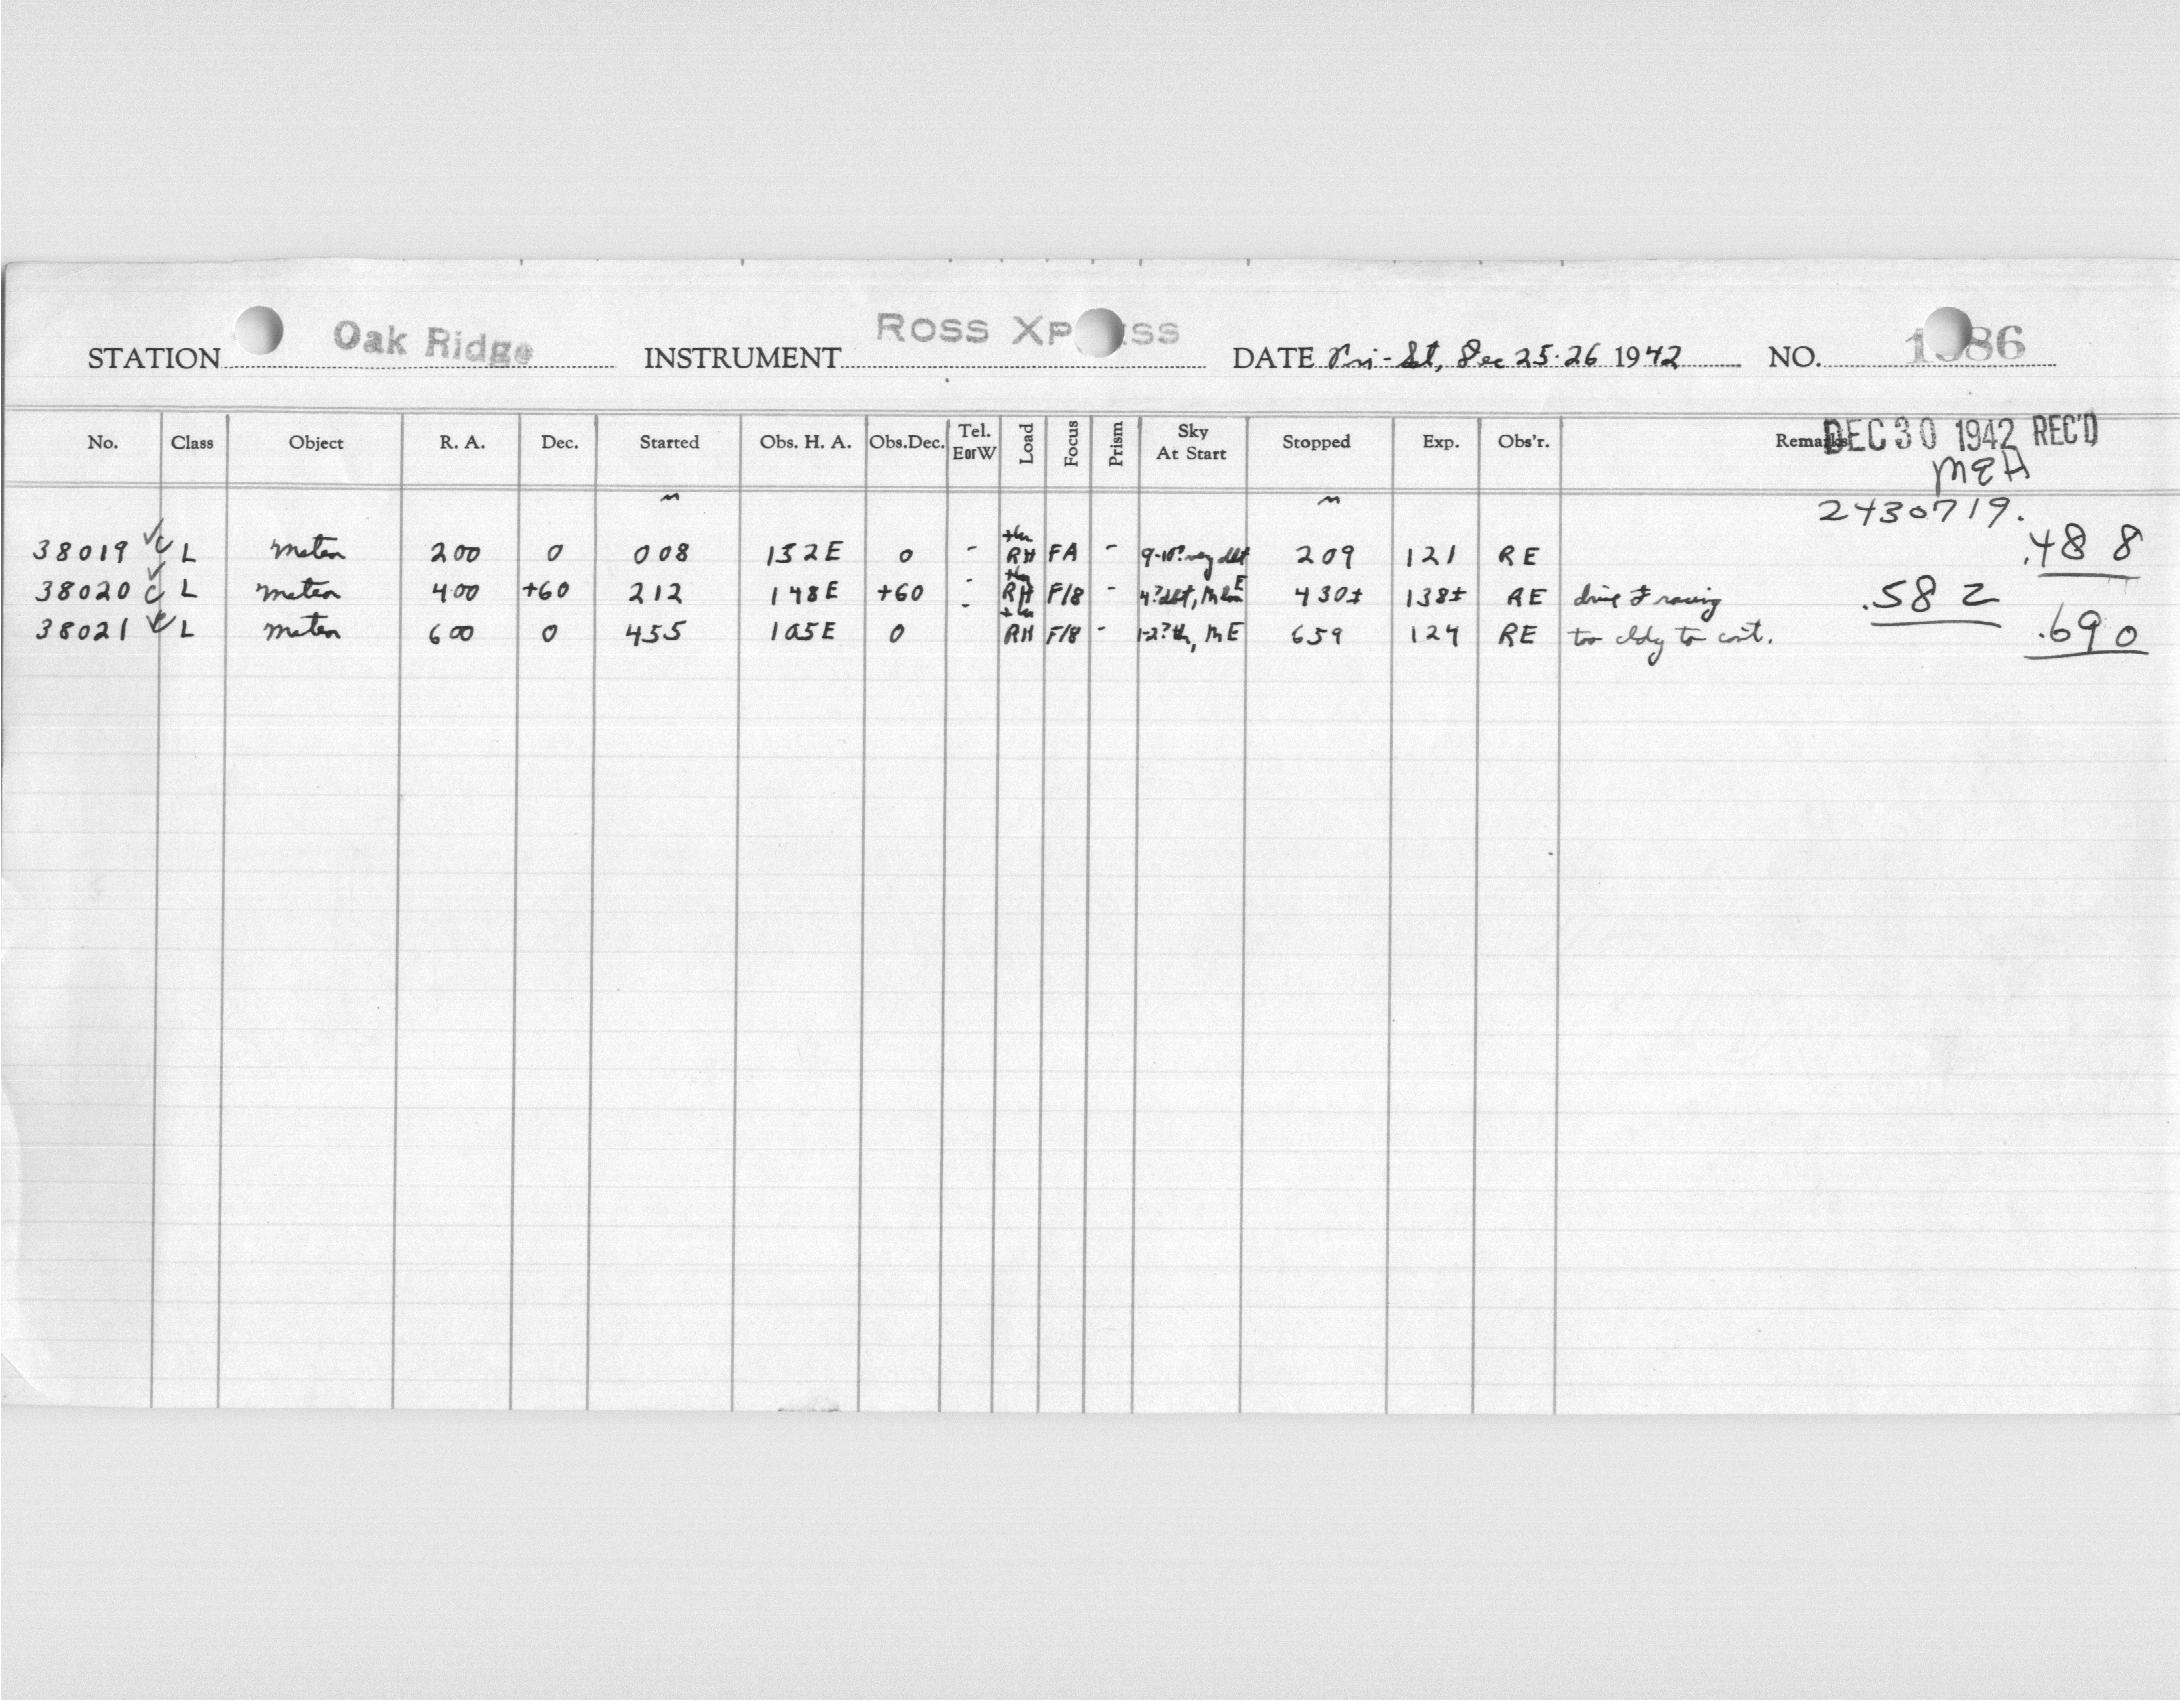 STATION Oak Ridge INSTRUMENT ROSS XP ESS DATE Fri-Sat, Dec 25-26 1942 NO. 1 86
No. Class Object R. A. Dec. Started Obs. H. A. Obs.Dec. Tel. EorW Load Focus Prism Sky At Start Stopped Exp. Obs'r. Remarks DEC 30 1942 REC'D
MEH
2430719.
38019 ✓ C L meteor 200 0 008 152E 0 - RH FA - 9-10? very 209 121 RE .488
38020 ✓ C L meteor 400 +60 212 148E +60 - RH F/8 - 4? 430± 138± RE drive racing .582
38021 ✓ C L meteor 600 0 455 105E 0 - RH F/8 - 1-2? th, M E 659 124 RE too cldy to cont. .690